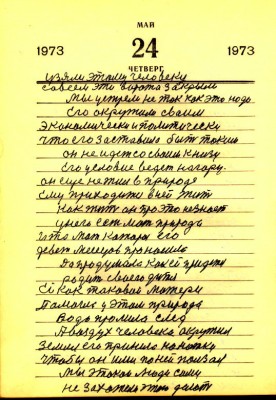 МАЙ
1973 24 1973
ЧЕТВЕРГ
узяли этому человеку
совсем эти ворота закрыли
Мы устрем не так как это надо
Его окружили своим
Экономически и политически
что его заставило быть таким
он не идет со своим книзу
Его условие ведет нагару.
он еще не жил в природе
Ему приходится в ней жить
Как жить он про это не знает
у него есть мать природа
и эта мать которая его
девять месяцев проносила
Да продумала как ей придется
родить своего дитя
Ей как таковой матери
Помогли у этом природа
Вода промыла след
А воздух человека окружил
Земля его приняла на
чтобы он или по ней ползал
Мы этого люди сами
не захотели этого делать